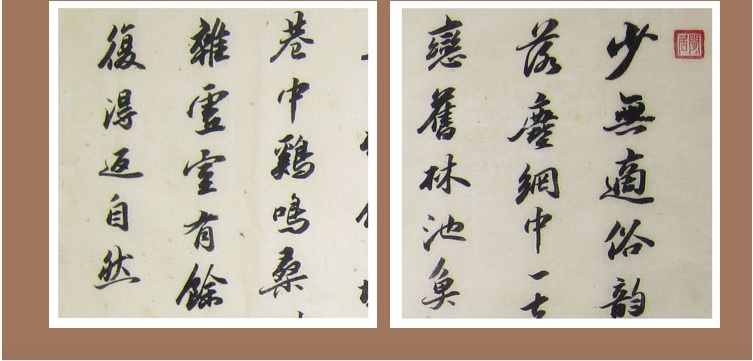 少無適俗韻
落塵網中一
戀舊林池魚
巷中鷄鳴桑
雜虛室有餘
復得返自然